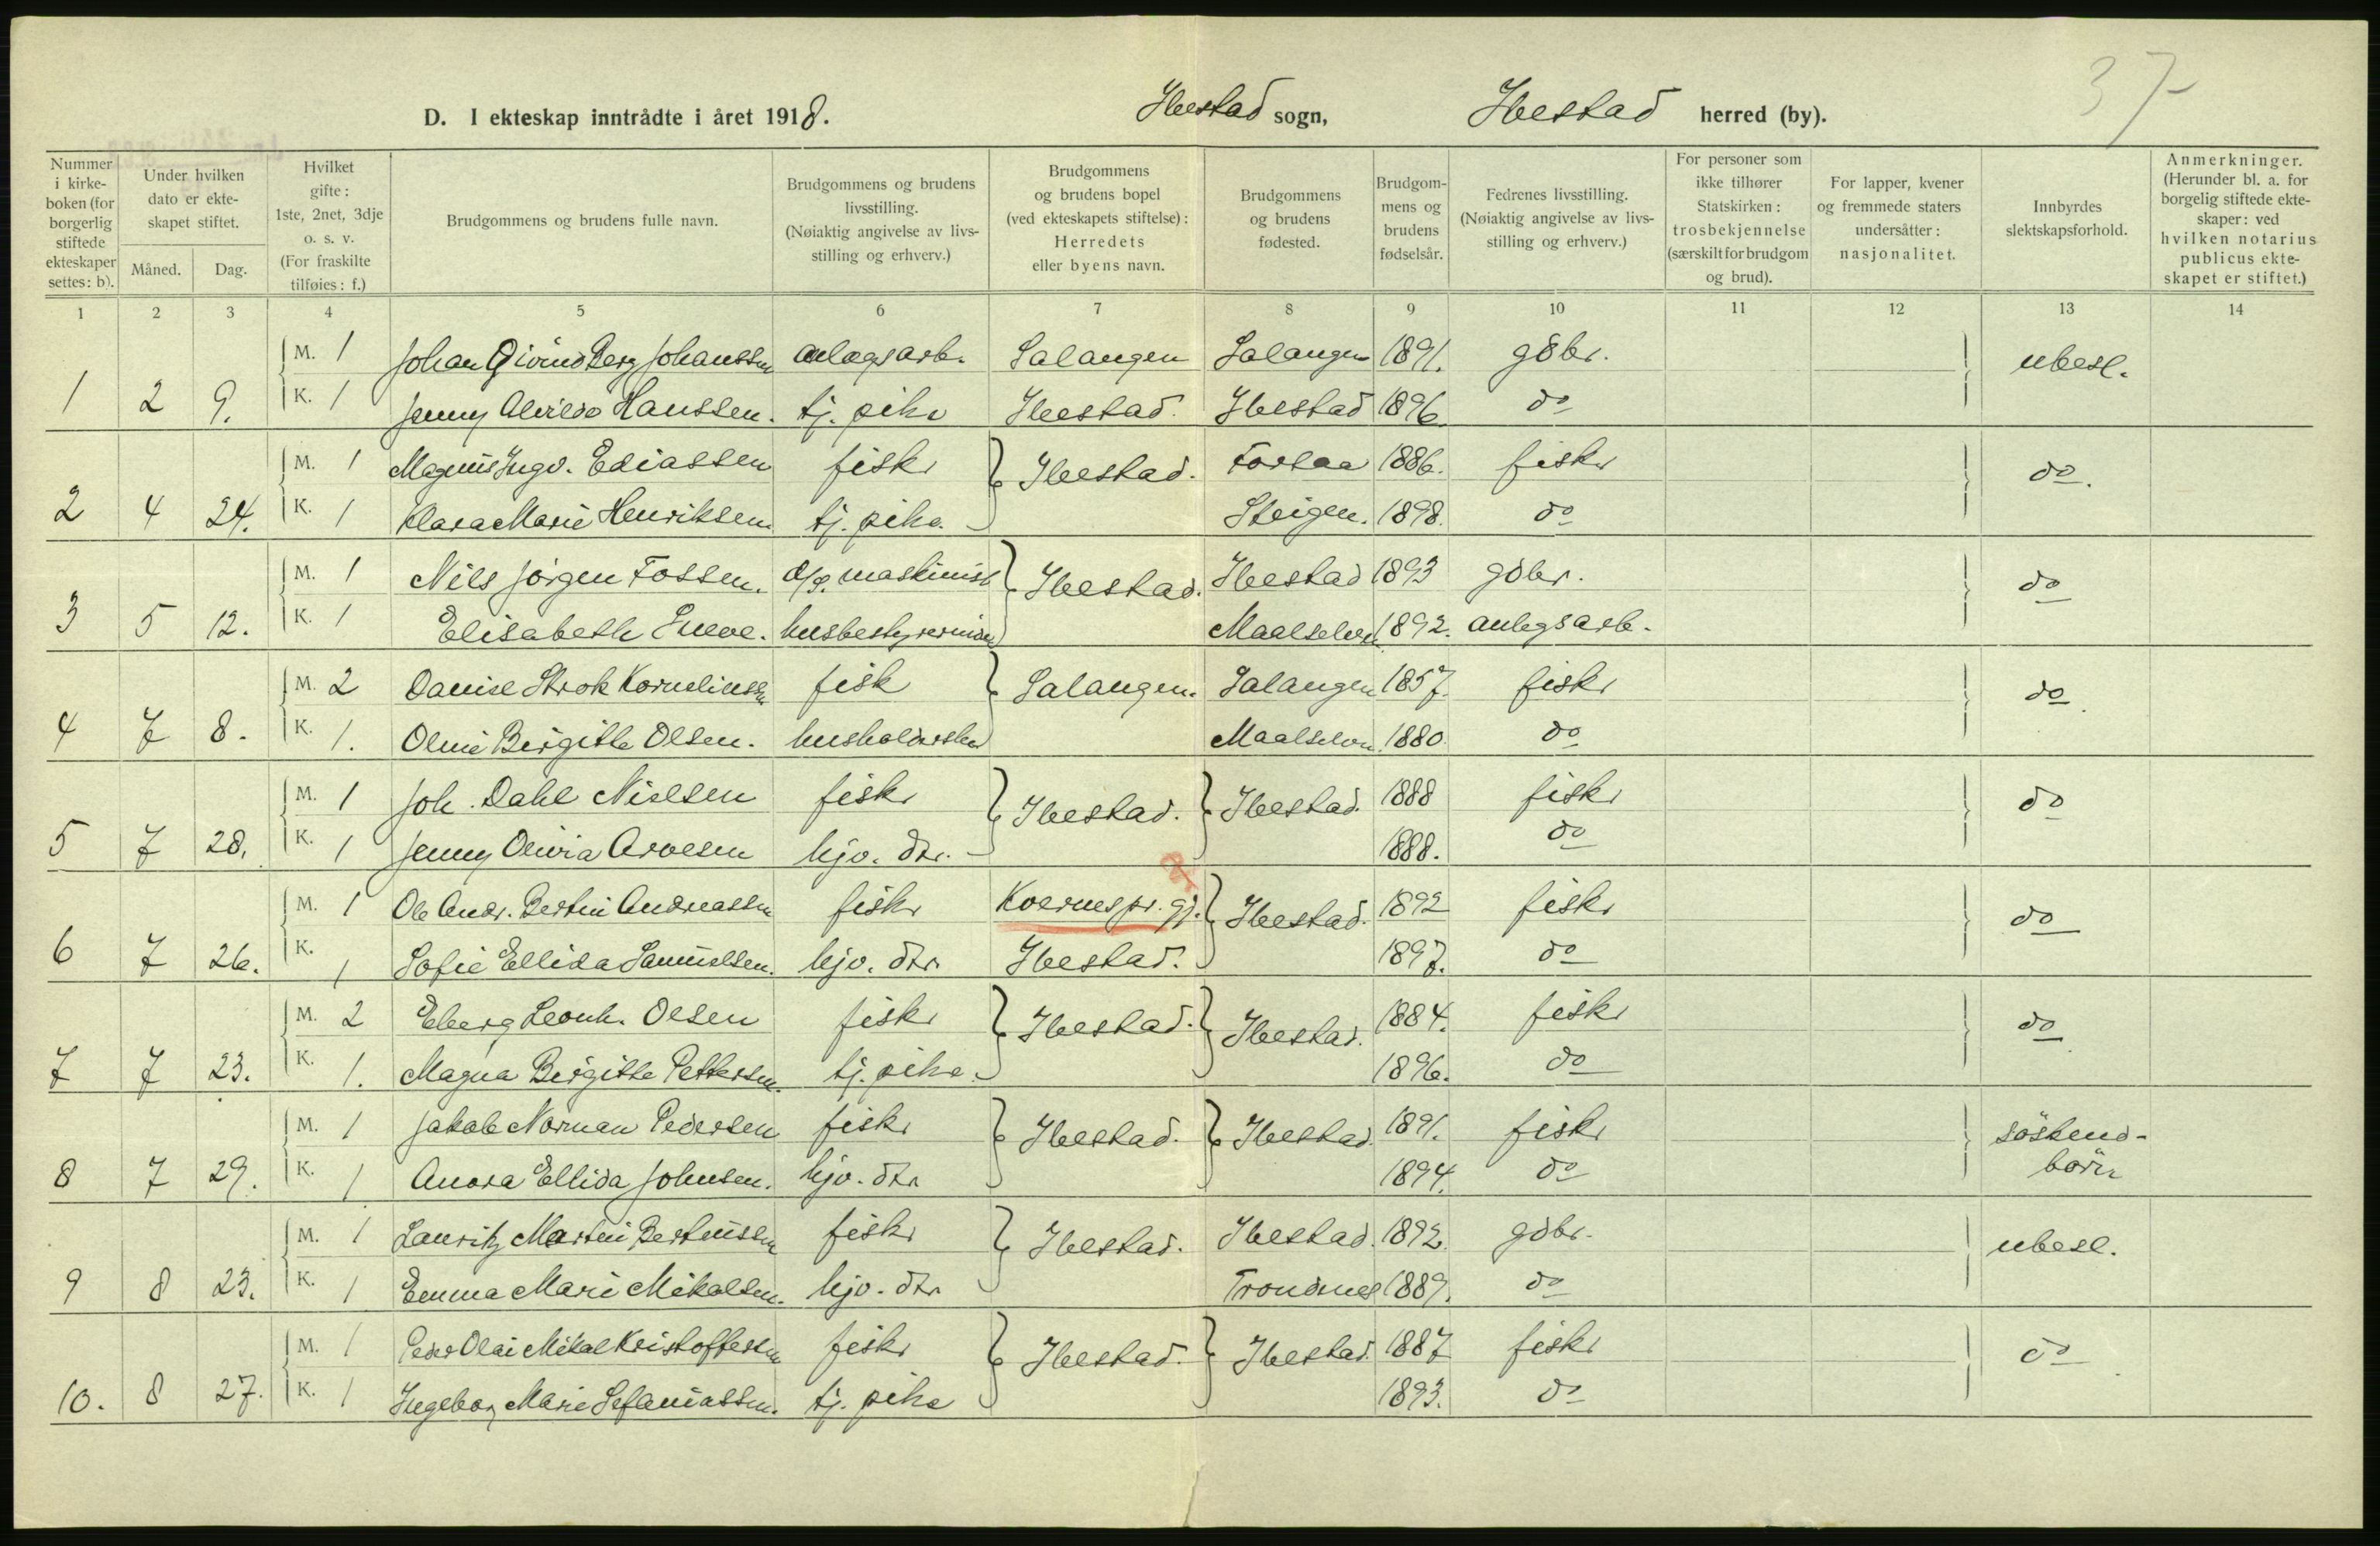 37
D. I ekteskap inntrådte i året 1918. Ibestad sogn, Ibestad herred (by).
Nummer i kirke-boken (for borgerlig stiftede ekteskaper settes: b). | Under hvilken dato er ekte-skapet stiftet. Måned. Dag. | Hvilket gifte: 1ste, 2net, 3dje o. s. v. (For fraskilte tilføies: f.) | Brudgommens og brudens fulle navn. | Brudgommens og brudens livsstilling. (Nøiaktig angivelse av livs-stilling og erhverv.) | Brudgommens og brudens bopel (ved ekteskapets stiftelse): Herredets eller byens navn. | Brudgommens og brudens fødested. | Brudgom-mens og brudens fødselsår. | Fedrenes livsstilling. (Nøiaktig angivelse av livs-stilling og erhverv.) | For personer som ikke tilhører Statskirken: trosbekjennelse (særskilt for brudgom og brud). | For lapper, kvener og fremmede staters undersåtter: nasjonalitet. | Innbyrdes slektskapsforhold. | Anmerkninger. (Herunder bl. a. for borgelig stiftede ekte-skaper: ved hvilken notarius publicus ekte-skapet er stiftet.)
1 2 3 4 5 6 7 8 9 10 11 12 13 14
M. 1 Johan Øivind Berg Johanssen anlægsarb. Salangen Salangen 1891. gdbr. ubesl.
1 2 9. K. 1 Jenny Alvilde Hanssen. tj. pike Ibestad. Ibestad 1896 do
M. 1 Magnus Ingv. Ediassen fisker Ibestad. 1886. fisker do.
2 4 24. K. 1 Klara Marie Henriksen tj. pike. Steigen. 1898. do
M. 1 Nils Jørgen Fossen. maskinist Ibestad. Ibestad 1893 gdbr. do
3 5 12. K. 1 Elisabeth husbestyrerinde Maalselven 1892. anlegsarb.
M. 2 Daniel Strok Korneliussen fisk Salangen. Salangen 1857. fisker do
4 7 8. K. 1. Oline Birgitte Olsen. husholderske Maalselven 1880. do
M. 1 Joh. Dahl Nielsen fisker Ibestad. Ibestad. 1888 fisker do
5 7 28. K. 1 Jenny Olivia Arvesen hjv. dtr. 1888. do
M. 1 Ole Andr. Bertin Andreassen fisker Kvernes pr. gj. Ibestad. 1892 fisker do
6 7 26. K. 1 Sofie Ellida Samuelsen. hjv. dtr. Ibestad. 1897. do
M. 2 Eberg Leonh. Olsen fisker Ibestad. Ibestad. 1884. fisker do
7 7 23. K. 1. Magna Birgitte Pettersen. tj. pike. 1896. do
M. 1 Jakob Norman Pedersen fisker Ibestad. Ibestad. 1891. fisker søskend-
8 7 29. K. 1 Anora Ellida Johnsen. hjv. dtr. 1894. do børn
M. 1 Lauritz Martin Bertinussen fisker Ibestad. Ibestad. 1892. gdbr. ubesl.
9 8 23. K. 1 Emma Marie Mikalsen. hjv. dtr. Trondnes 1889. do
M. 1 Peder Olai Mikal Kristoffersen fisker Ibestad. Ibestad. 1887 fisker do
10. 8 27. K. 1 Ingeborg Marie Sefaniassen. tj. pike 1893. do